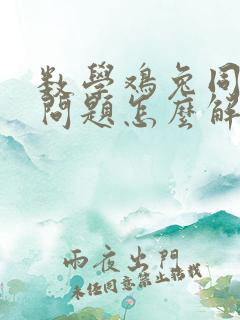 数學鸡兔同
問題怎麼解
雨夜出門
未经同意禁止转载